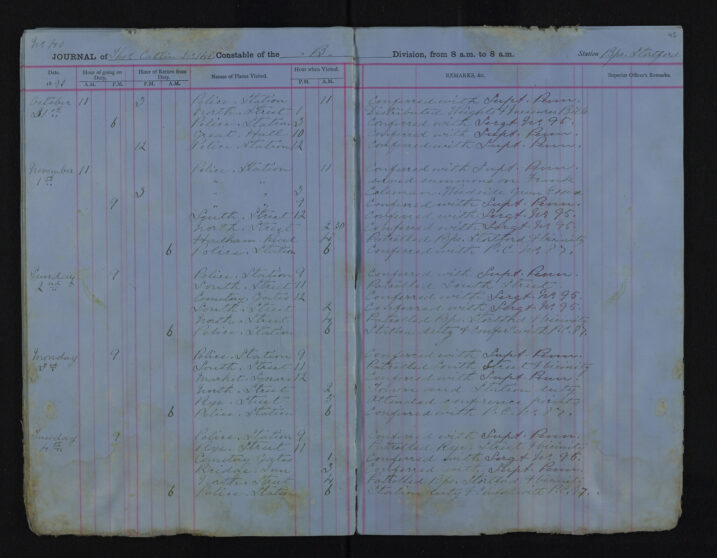 JOURNAL of Constable of the B. Division, from 8 a.m. to 8 a.m. Station Bps. Stortford
Date. Hour of going on Duty. Hour of Return from Duty. Names of Places Visited. Hour when Visited. REMARKS, &c. Superior Officer's Remarks.
A.M. P.M. P.M. A.M. P.M. A.M.
October 11 3 Police Station 11 Conferred with Supt. Penn.
31st North Street 1 Distributed Weights & Measures Bills
6 Police Station 3 Conferred with Sergt. No. 95.
Great Hall 10 Conferred with Supt. Penn.
12 Police Station 12 Conferred with Supt. Penn.
November 11 Police Station 11 Conferred with Supt. Penn.
1st " " summons
3 " " 3
9 " " 9 Conferred with Supt. Penn.
South Street 12 Conferred with Sergt. No. 95.
North Street 2 30 Conferred with Sergt. No. 95.
Hadham Road 4 Patrolled Bps. Stortford & vicinity
6 Police Station 6 Conferred with P.C. No. 87.
Sunday 9 Police Station 9 Conferred with Supt. Penn.
2nd South Street 11 Patrolled South Street
Cemetery Gates 12 Conferred with Sergt. No. 95.
South Street 2 Conferred with Sergt. No. 95.
North Street 4 Patrolled Bps. Stortford & vicinity
6 Police Station 6 Station duty & Confd. with P.C. 87.
Monday 9 Police Station 9 Conferred with Supt. Penn.
3rd South Street 11 Patrolled South Street & vicinity
Market Square 12 Conferred with Supt. Penn.
North Street 2 Town and Station duty
Street 5 Attended conference points
6 Police Station 6 Conferred with P.C. No. 87.
Tuesday 9 Police Station 9 Conferred with Supt. Penn.
4th Street 11 Patrolled Street & vicinity
Cemetery Gates 1 Conferred with Sergt. No. 95.
Bridge Inn 3 Conferred with Supt. Penn.
North Street 4 Patrolled Bps. Stortford & vicinity
6 Police Station 6 Station duty & Confd. with P.C. 87.